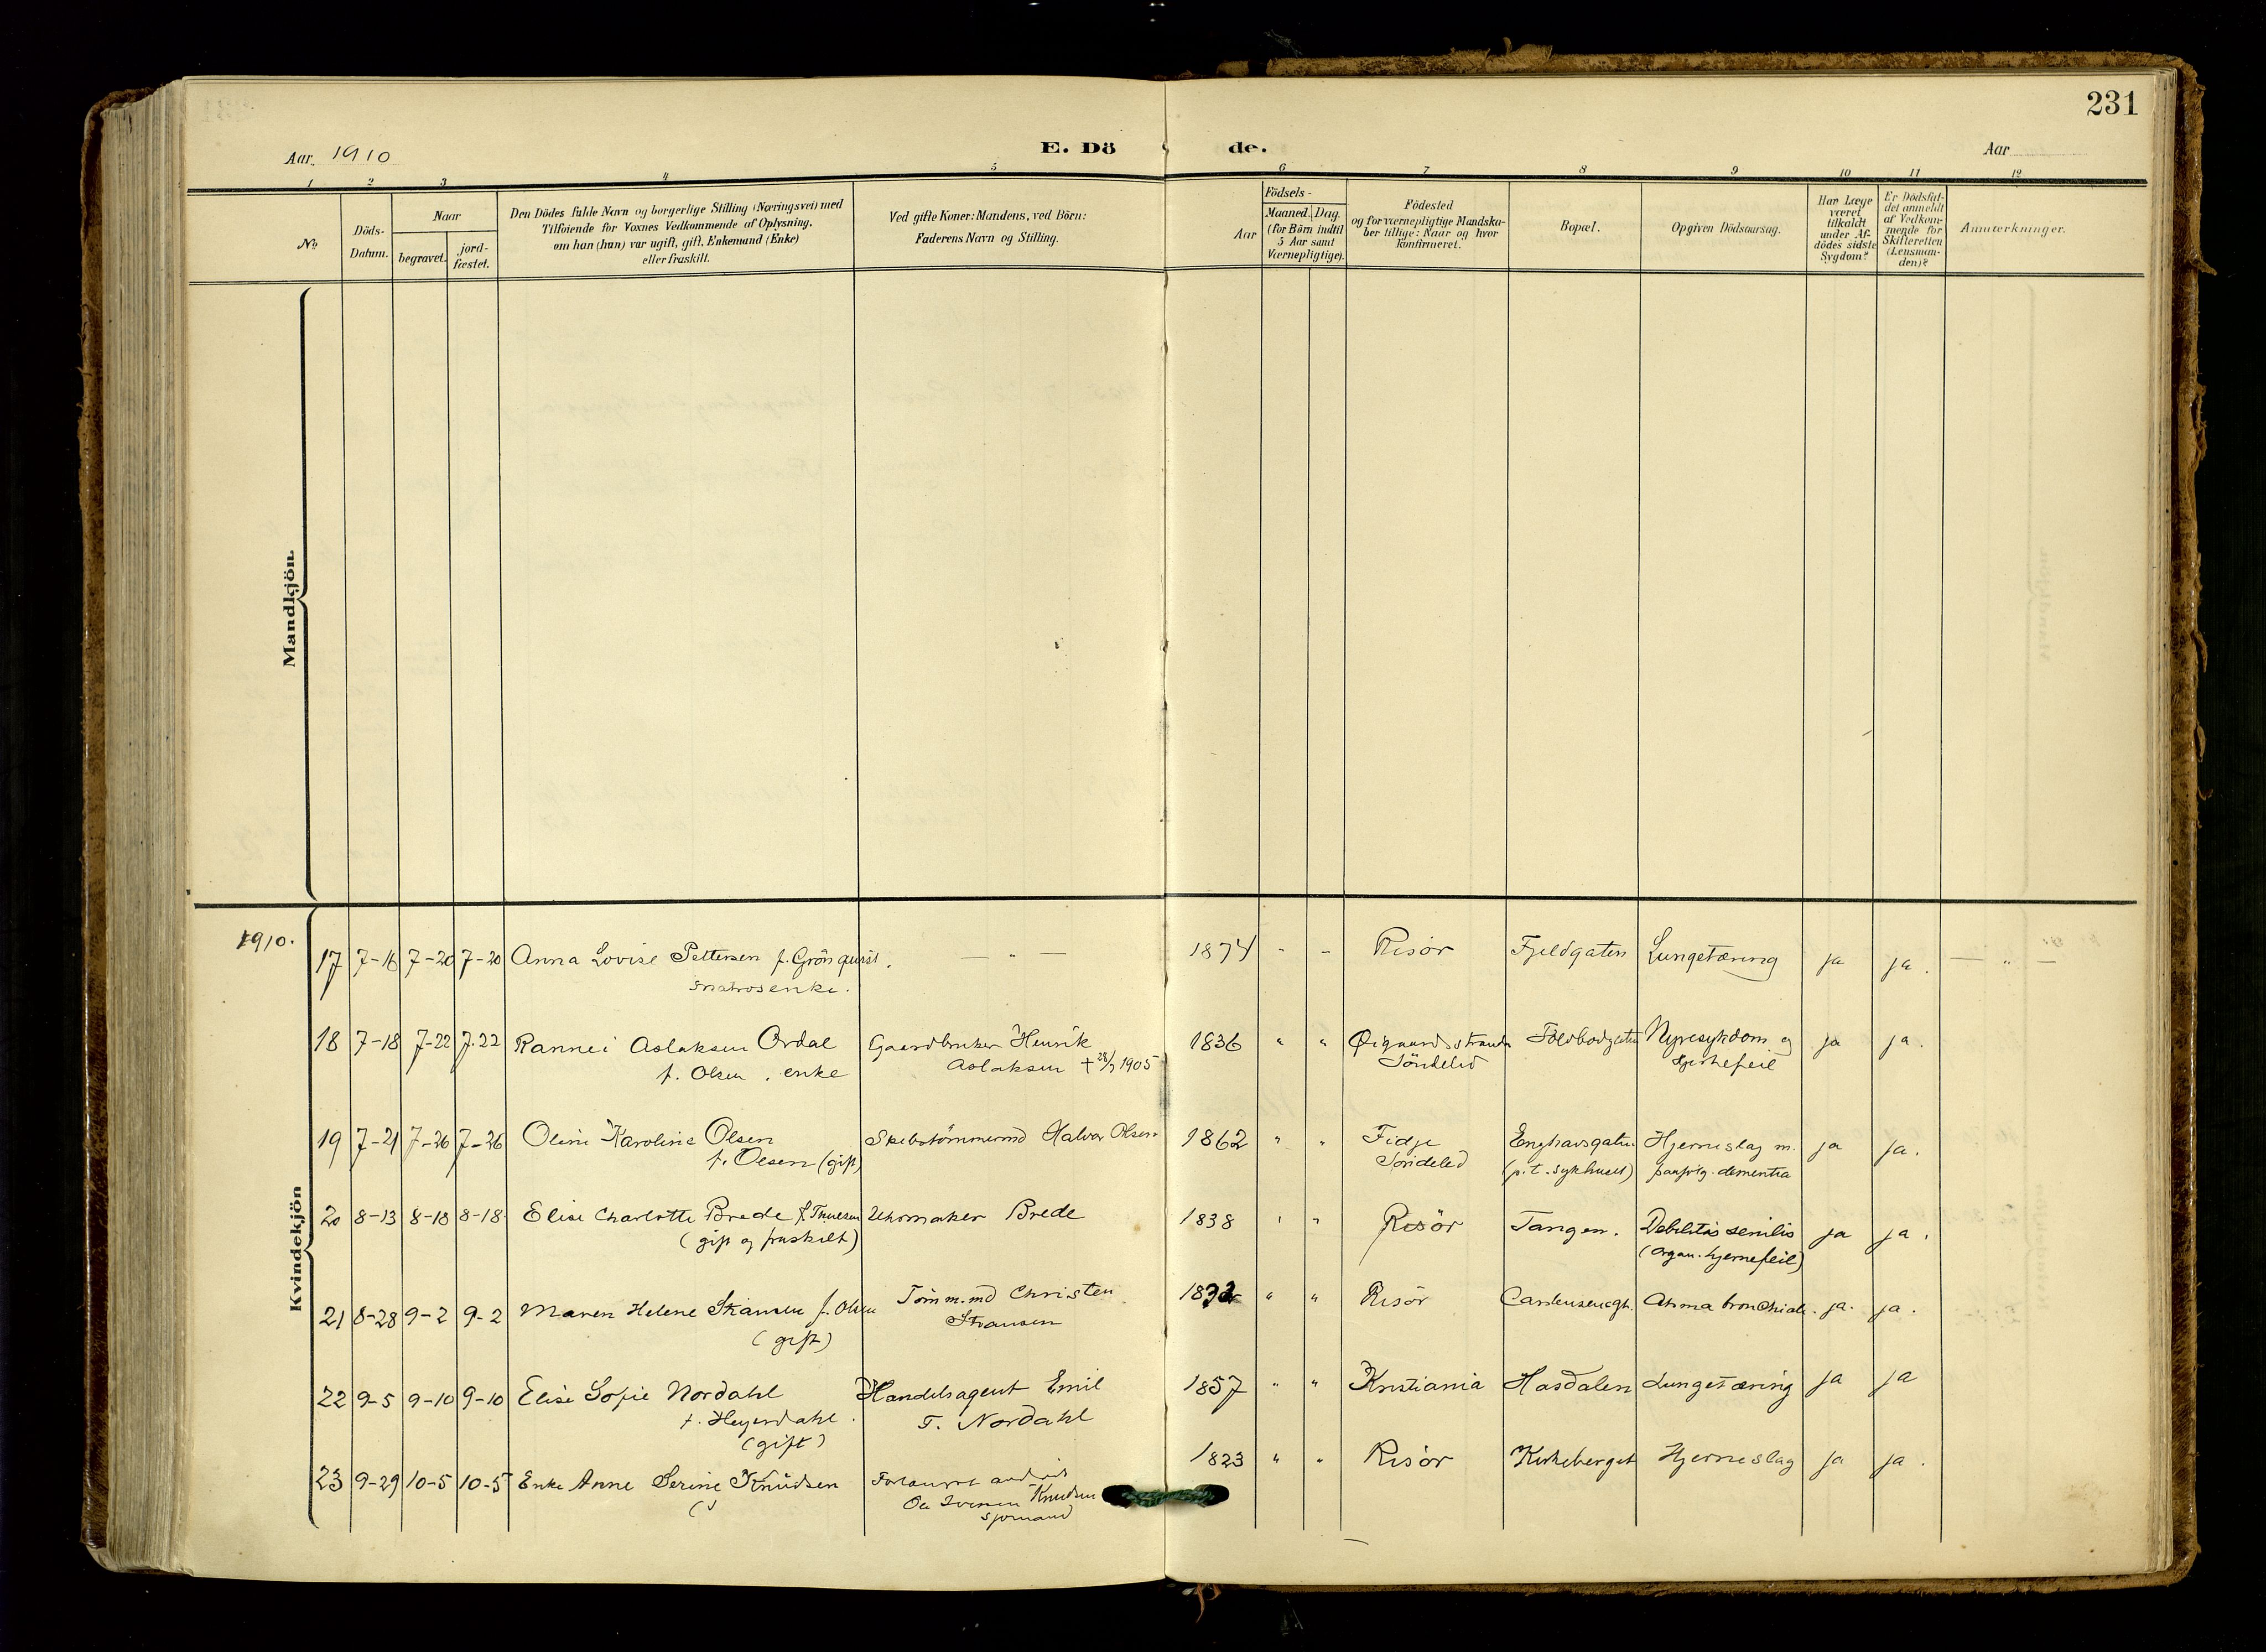 231
Aar. 1910
E. Dö
de.
Aar
1 2 3 4 5 6 7 8 9 10 11 12
No
Döds-
Datum.
Naar
begravet.
jord-
fæstet.
Den Dödes fulde Navn og borgerlige Stilling (Næringsvei) med
Tilföiende for Voxnes Vedkommende af Oplysning,
om han (hun) var ugift, gift, Enkemand (Enke)
eller fraskilt.
Ved gifte Koner: Mandens, ved Börn:
Faderens Navn og Stilling.
Födsels-
Aar
Maaned. Dag.
(for Börn indtil
5 Aar samt
Værnepligtige).
Födested
og for værnepligtige Mandska-
ber tillige: Naar og hvor
konfirmeret.
Bopæl.
Opgiven Dödsaarsag.
Har Læge
været
tilkaldt
under Af-
dödes sidste
Sygdom?
Er Dödsfal-
det anmeldt
af Vedkom-
mende for
Skifteretten
(Lensman-
den)?
Anmærkninger.
Mandkjön.
Kvindekjön
1910.
17 7-16 7-20 7-20 Anna Lovise Pettersen f. Grönquist. — " — 1874 " " Risör Fjeldgaten Lungetæring ja ja. — " —
matrosenke.
18 7-18 7-22 7.22 Rannei Aslaksen Ordal Gaardbruker Henrik 1836 " " Øigaardsstrand Toldbodgaten Nyresykdom og ja ja.
f. Olsen, enke Aslaksen † 28/7 1905 Söndeled Hjertefeil
19 7-21 7-26 7-26 Oline Karoline Olsen Skibstömmermd Halvor Olsen 1862 " " Fidje Enghavsgaten Hjerneslag m. ja ja.
f. Olsen (gift) Söndeled (p.t. sykhuset) paafølg. dementia
20 8-13 8-18 8-18. Elise Charlotte Brede f. Thuesen Uhrmaker Brede 1838 " " Risör Tangen. Debilitas senilis ja ja.
(gift og fraskilt) (organ. hjernefeil)
21 8-28 9-2 9-2 Maren Helene Stiansen f. Olsen Tömm.md Christen " " Risör Carstensensgt. Astma bronchiale. ja. ja.
(gift) Stiansen
22 9-5 9-10 9-10 Elise Sofie Nordahl Handelsagent Emil 1857 " " Kristiania Hasdalen Lungetæring ja ja
f. Heyerdahl. T. Nordahl
(gift)
23 9-29 10-5 10-5 Enke Anne Serine Knudsen 1823 " " Risör Kirkeberget Hjerneslag ja ja.
Knudsen
sjömand